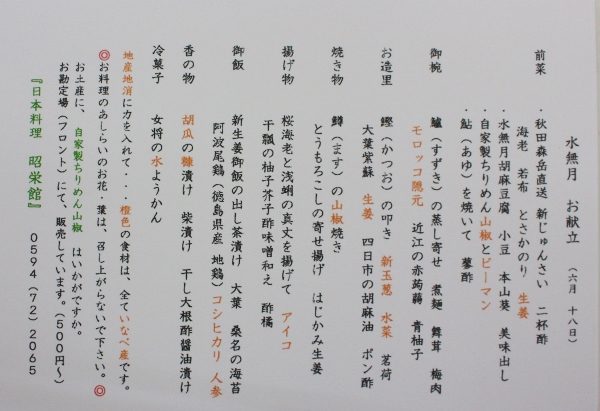 水無月 お献立 (六月 十八日)
前菜 ・秋田森岳直送 新じゅんさい 二杯酢
海老 若布 とさかのり 生姜
・水無月胡麻豆腐 小豆 本山葵 美味出し
・自家製ちりめん山椒とピーマン
・鮎(あゆ)を焼いて 蓼酢
御椀 鱸(すずき)の蒸し寄せ 煮麺 舞茸 梅肉
モロッコ隠元 近江の赤蒟蒻 青柚子
お造里 鰹(かつお)の叩き 新玉葱 水菜 茗荷
大葉紫蘇 生姜 四日市の胡麻油 ポン酢
焼き物 鱒(ます)の山椒焼き
とうもろこしの寄せ揚げ はじかみ生姜
揚げ物 桜海老と浅蜊の真丈を揚げて アイコ
干瓢の柚子芥子酢味噌和え 酢橘
御飯 新生姜御飯の出し茶漬け 大葉 桑名の海苔
阿波尾鶏(徳島県産 地鶏) コシヒカリ 人参
香の物 胡瓜の糠漬け 柴漬け 干し大根酢醤油漬け
冷菓子 女将の水ようかん
地産地消に力を入れて・・・橙色の食材は、全ていなべ産です。
◎お料理のあしらいのお花・葉は、召し上がらないで下さい。◎
お土産に、自家製ちりめん山椒 はいかがですか。
お勘定場(フロント)にて、販売しています。(500円~)
『日本料理 昭栄館』 0594(72)2065